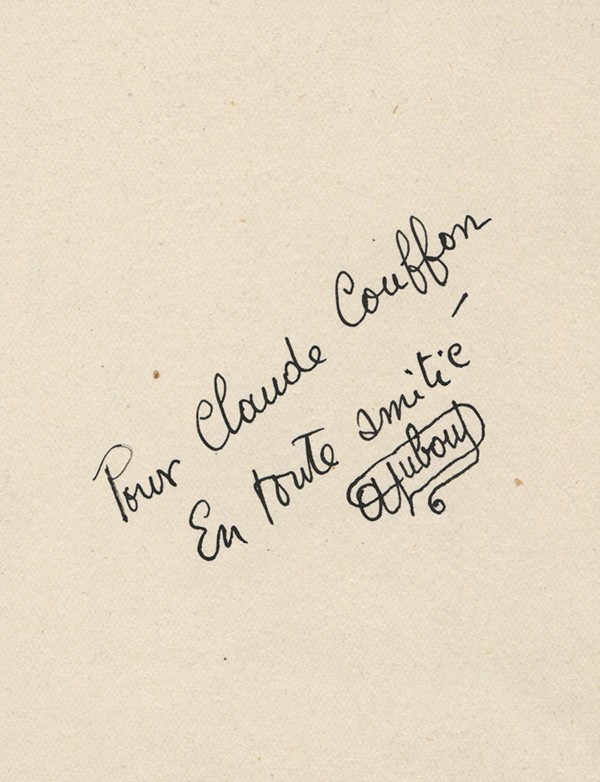 Pour Claude Couffon
En toute amitié